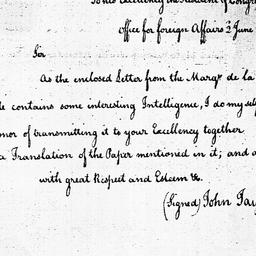 Excellency the President of Congr
Office for foreign Affairs 2 June
Sir
As the enclosed Letter from the Marqs de la
contains some interesting Intelligence, I do my self
onor of transmitting it to your Excellency together
a Translation of the Paper mentioned in it; and a
with great Respect and Esteem &c.
(Signed) John Jay